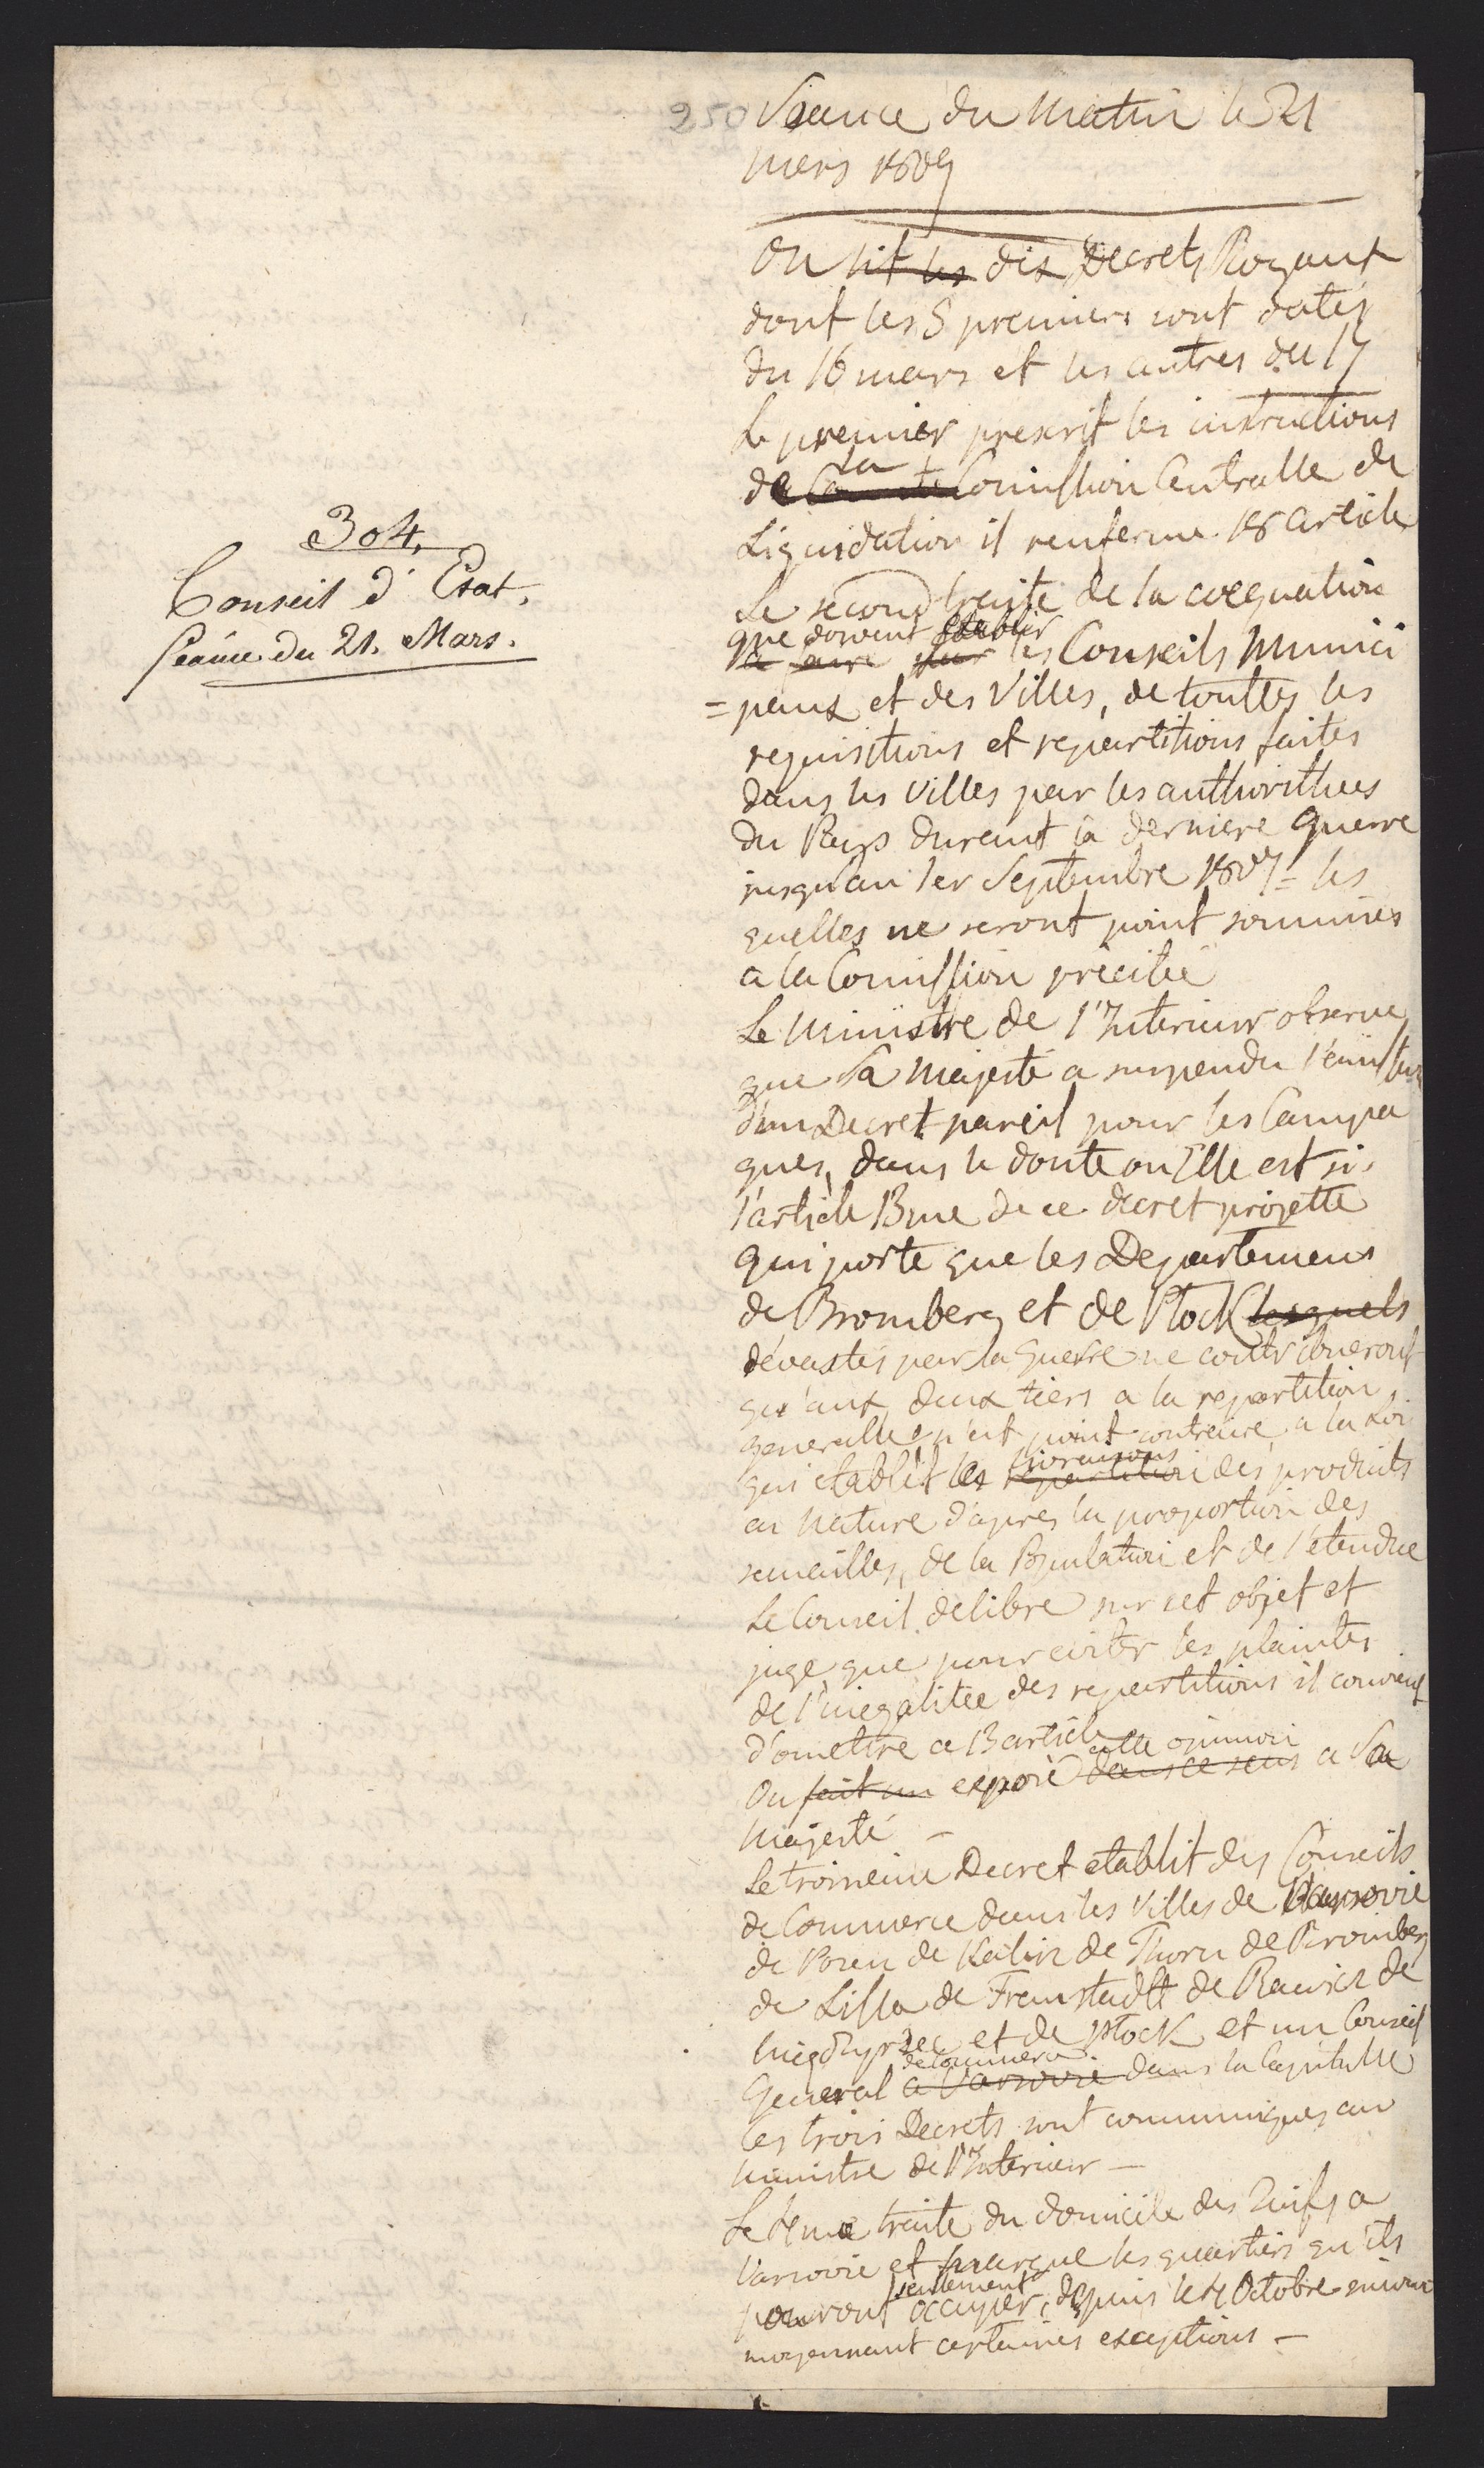 250
Séance du Matin le 21
mars 1809
304.
Conseil d'Etat.
Séance du 21. Mars.
On lit les dix Decrets Royaux
dont les 8 premiers sont datés
du 16 mars et les autres du 17
Le premier prescrit les instructions
de la Comission Centralle de
Liquidation il renferme 18 article
Le second traite de la coequation
que doivent etablir
a faire par les Conseils Munici
=paux et des Villes, de touttes les
requisitions et repartitions faites
dans les Villes par les authorithees
du Pays durant la derniere Guerre
jusqu'au 1er Septembre 1807 = les
quelles ne seront point soumises
a la Comission précitée
Le Ministre de l'Interieur observe
que Sa Majesté a suspendu l'emission
d'un Decret pareil pour les Campa
gnes, dans le doute ou Elle est si
l'article 13me de ce decret projetté
qui porte que les Departemens
de Bromberg et de Plock lesquels
dévastés par la Guerre ne contribueront
qu'aux deux tiers a la repartition
generalle n'est point contraire a la Loi
qui etablit les livraisons
repartition des produits
en Nature d'apres la proportion des
semailles, de la Population et de l'etendue
Le Conseil delibere sur cet objet et
juge que pour eviter les plaintes
de l'inegalitée des repartitions il convient
d'omettre ce 13 article
cette opinion
On fait un exposé dans ce sens a Sa
Majesté –
Le troisieme Decret etablit des Conseils
de Commerce dans les Villes de Varsovie
de Posen de Kalisz de Thorn de Bromberg
de Lissa de Fraustadt de Rawicz de
Miedzyrzec et de Plock et un Conseil
de Commerce
General a Varsovie dans la Capitalle
les trois Decrets sont communiqués au
Ministre de l'Interieur –
Le 4me traite du domicile des Juifs a
Varsovie et marque les quartiers qu'ils
seulement
pourront occuper, depuis le 1 Octobre suivant
moyennant certaines exceptions –